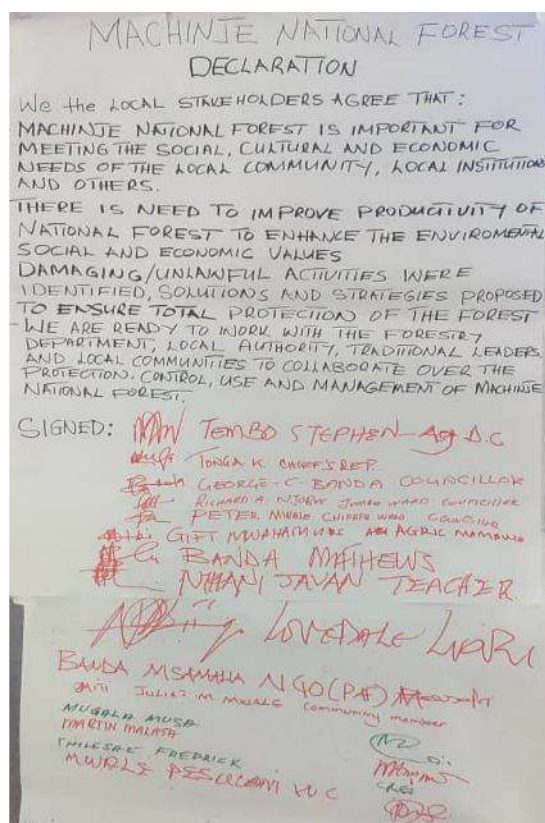 MACHINJE NATIONAL FOREST
DECLARATION
We the LOCAL STAKEHOLDERS AGREE THAT:
MACHINJE NATIONAL FOREST IS IMPORTANT FOR
MEETING THE SOCIAL, CULTURAL AND ECONOMIC
NEEDS OF THE LOCAL COMMUNITY, LOCAL INSTITUTIONS
AND OTHERS.
THERE IS NEED TO IMPROVE PRODUCTIVITY OF
NATIONAL FOREST TO ENHANCE THE ENVIROMENTAL
SOCIAL AND ECONOMIC VALUES
DAMAGING/UNLAWFUL ACTIVITIES WERE
IDENTIFIED, SOLUTIONS AND STRATEGIES PROPOSED
TO ENSURE TOTAL PROTECTION OF THE FOREST
- WE ARE READY TO WORK WITH THE FORESTRY
DEPARTMENT, LOCAL AUTHORITY, TRADITIONAL LEADERS
AND LOCAL COMMUNITIES TO COLLABORATE OVER THE
PROTECTION, CONTROL, USE AND MANAGEMENT OF MACHINJE
NATIONAL FOREST.
SIGNED: TEMBO STEPHEN - Ag D.C
TONGA K. CHIEF'S REP.
GEORGE - C. BANDA COUNCILLOR
RICHARD A. WARD COUNCILLOR
PETER MWALE WARD
GIFT AGRIC
BANDA MATHEWS
JAVAN TEACHER
LOVEDALE
BANDA NGO
JULIET M MWALE Community member
MUGALA MUSA
MARTIN MALATA
FREDRICK
MWALE